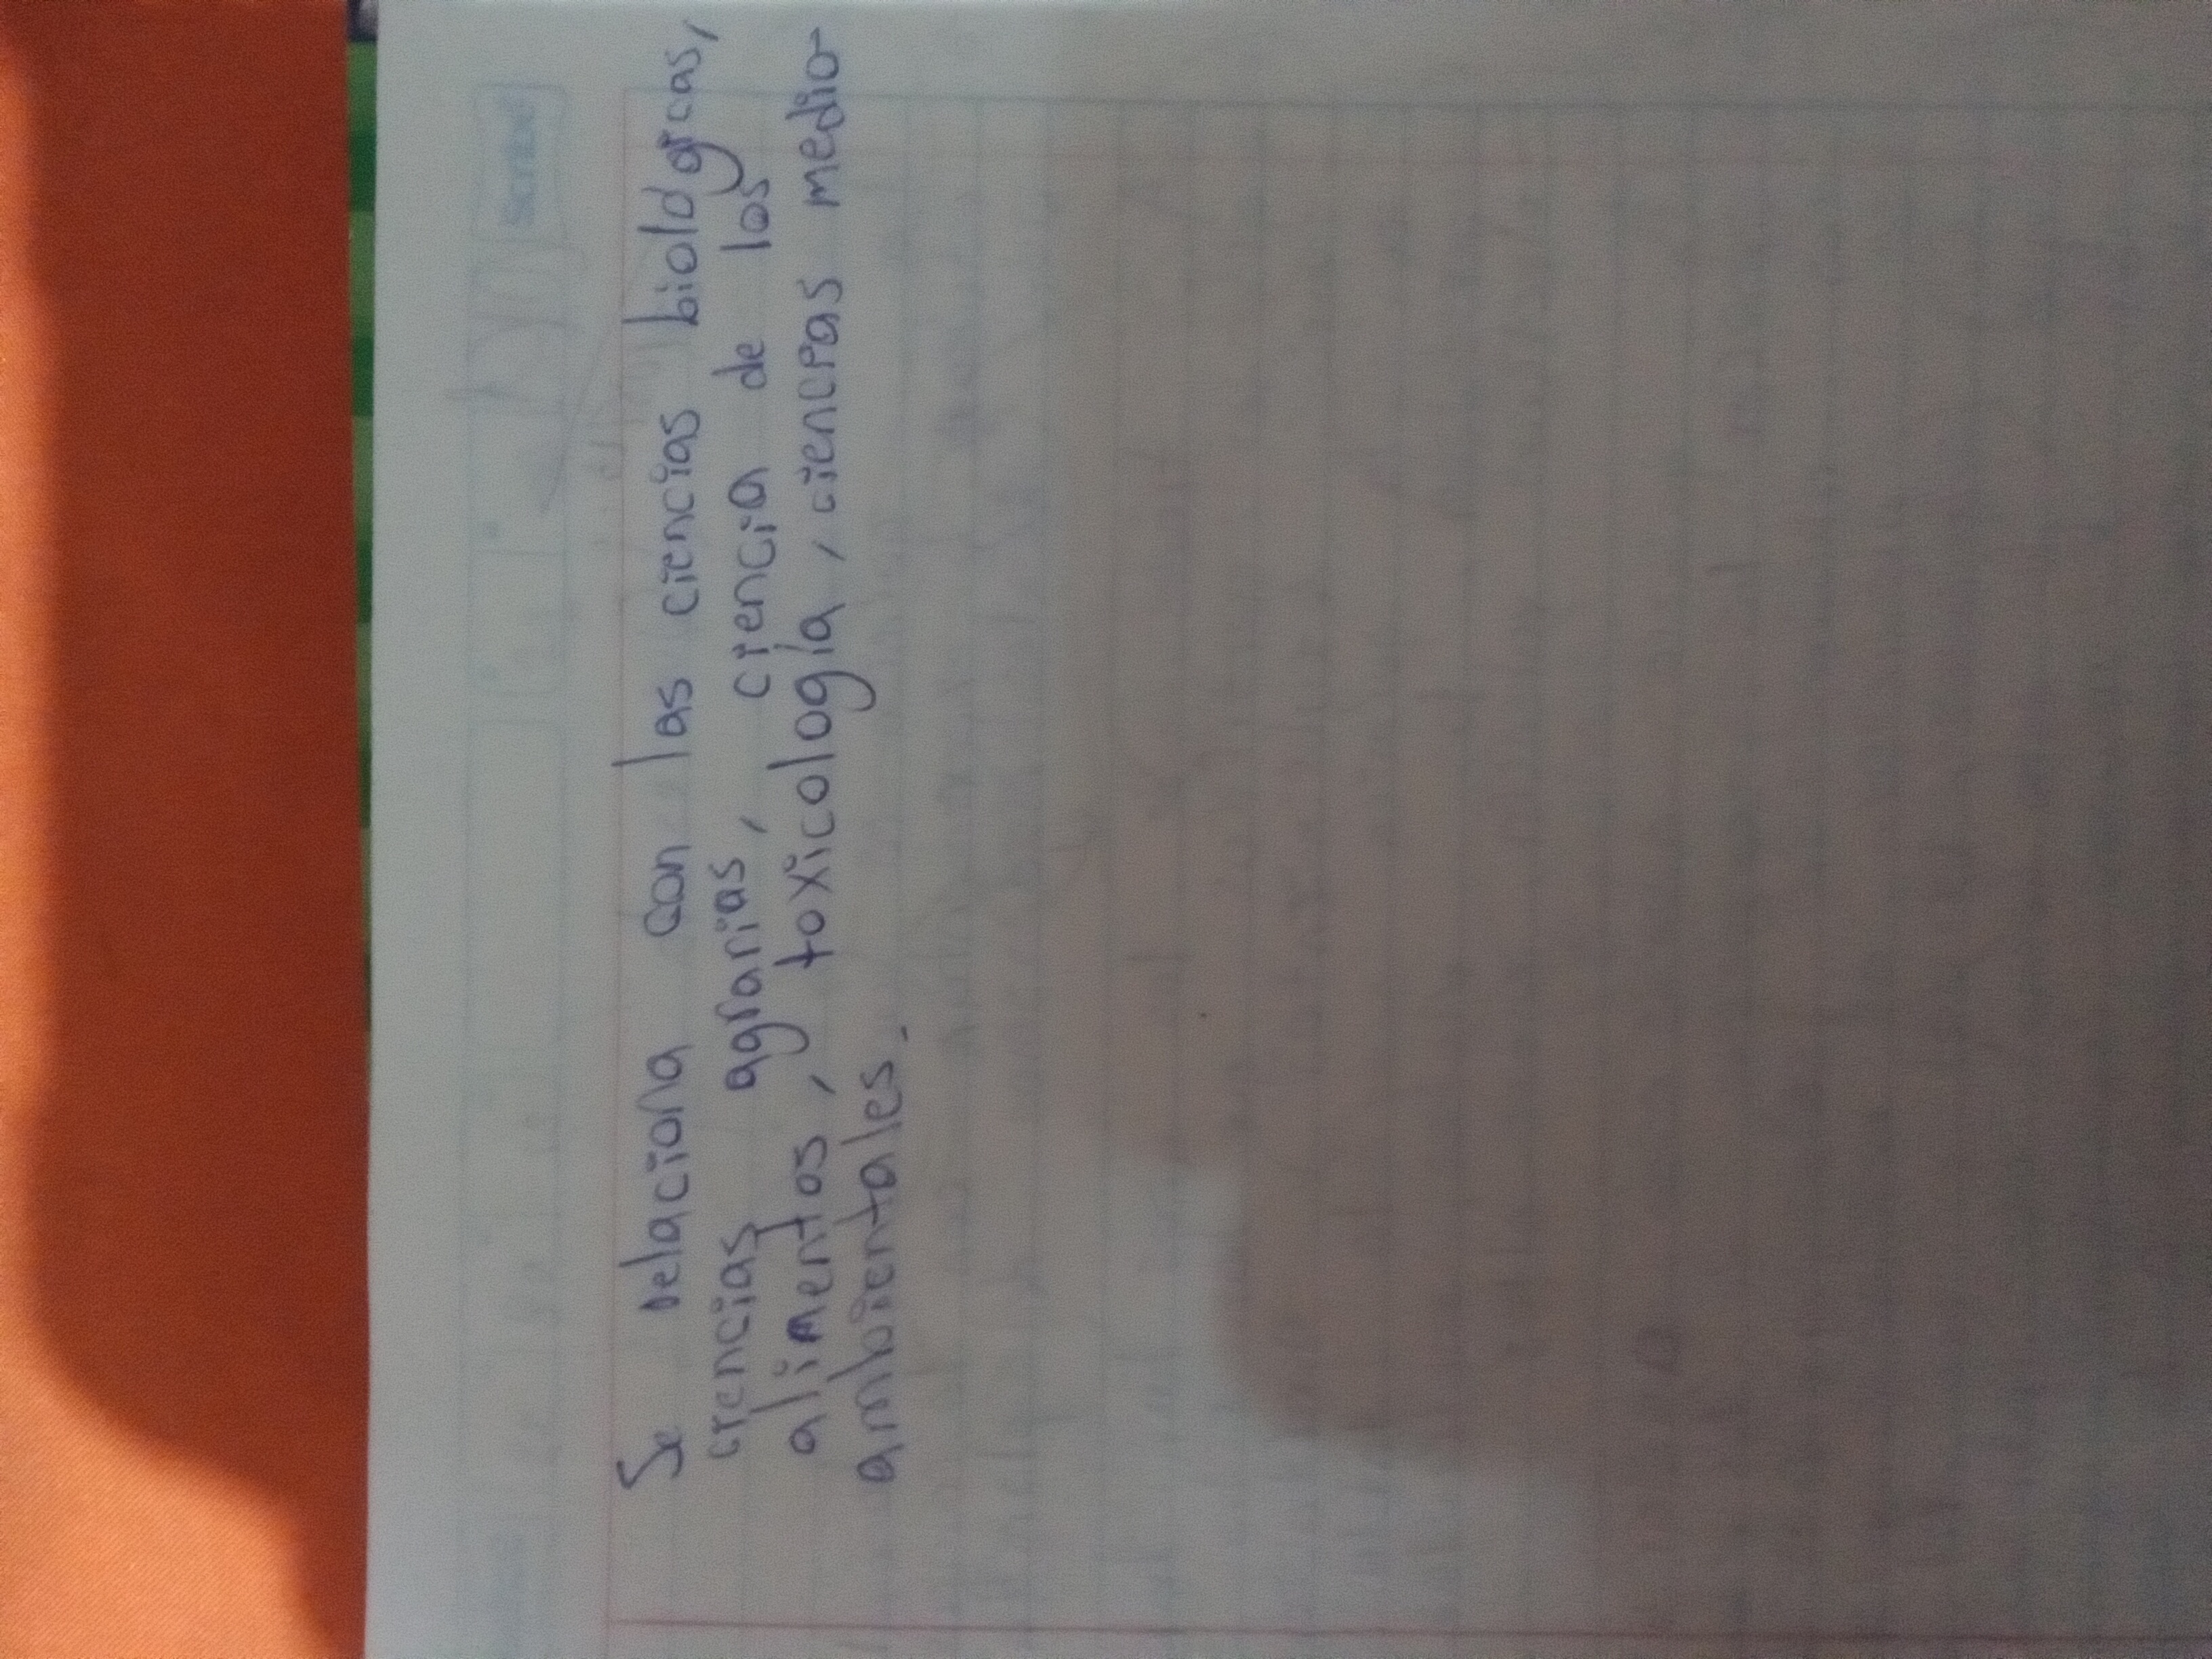 Scribe
Se relaciona con las ciencias biológicas,
ciencias agrarias, ciencia de los
alimentos, toxicología, ciencias medio-
ambientales.